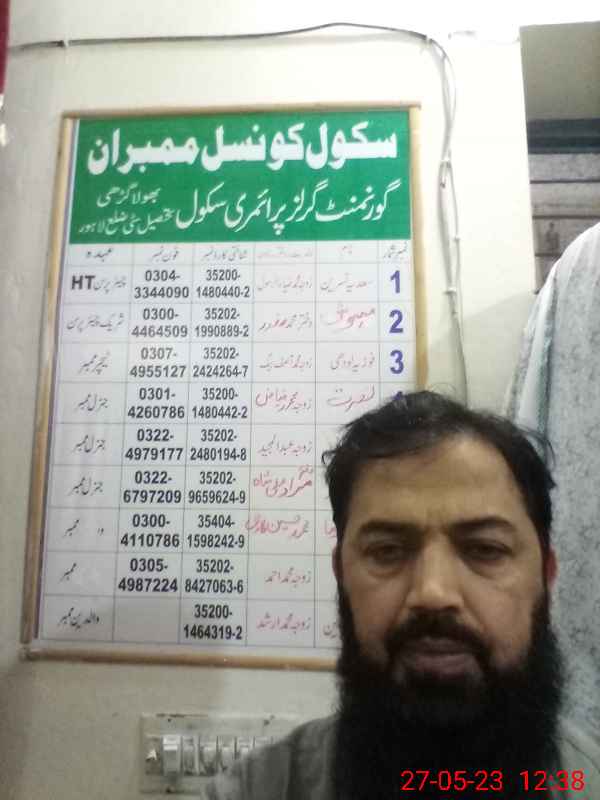 سکول کونسل ممبران
گورنمنٹ گرلز پرائمری سکول بھولا گڑھی
تحصیل سٹی ضلع لاہور
نمبر شمار نام شناختی کارڈ نمبر فون نمبر عہدہ
1 سعدیہ نسرین 35200-1480440-2 0304-3344090 چیئر پرسن HT
2 35202-1990889-2 0300-4464509 شریک چیئر پرسن
3 فوزیہ لودھی زوجہ محمد آصف بیگ 35202-2424264-7 0307-4955127 ٹیچر ممبر
نصرت زوجہ محمد ریاض 35200-1480442-2 0301-4260786 جنرل ممبر
زوجہ عبدالمجید 35202-2480194-8 0322-4979177 جنرل ممبر
35202-9659624-9 0322-6797209 جنرل ممبر
35404-1598242-9 0300-4110786 ممبر
زوجہ محمد احمد 35202-8427063-6 0305-4987224 ممبر
زوجہ محمد ارشد 35200-1464319-2 والدین ممبر
27-05-23 12:38